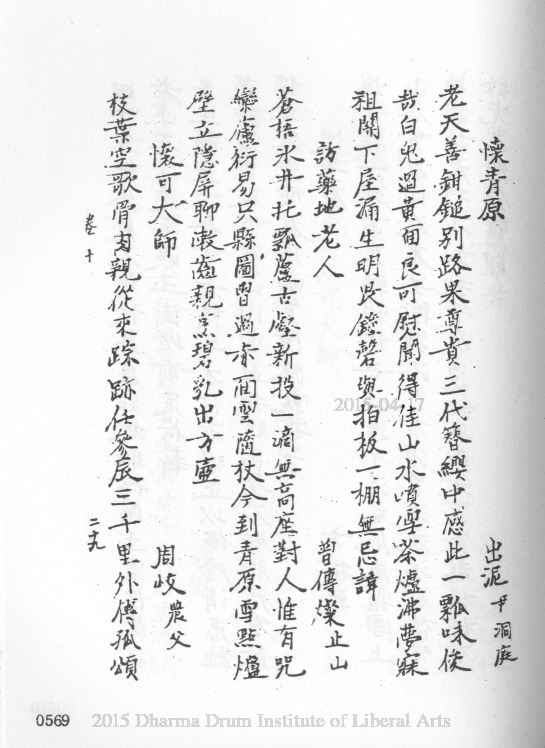 懷青原　出泥尹洞庭
老天善鉗鎚別路果尊貴三代簪纓中感此一瓢味俊
哉白兒過黃面良可慰聞得佳山水噴雪茶爐沸夢寐
祖關下屋漏生明此鐘磬與拍板一棚無忌諱
訪藥地老人　曾傳燦止山
蒼梧冰井托瓢蘆古壑新投一滴無高座對人惟有咒
欒廬衍易只縣圖曾過赤面雲隨杖今到青原雪點爐
壁立隱屏聊漱齒親烹碧乳出方壺
懷可大師　周岐農父
枝葉空歌骨肉親從來踪跡任參辰三千里外傳孤頌
卷十　二十九
2015-04-17
0569 2015 Dharma Drum Institute of Liberal Arts